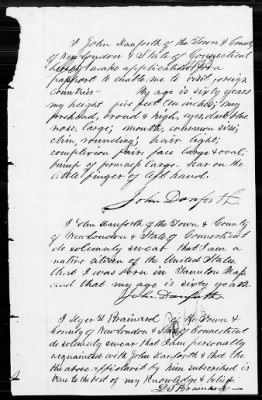 I John Danforth of the Town & County
of New London & State of Connecticut
hereby make application for a
passport to enable me to visit foreign
countries — My age is sixty years
my height five feet ten inches; my
forehead, broad & high; eyes, dark blue
nose, large; mouth, common size;
chin, rounding; hair light;
complexion fair face large & oval;
bump of firmness large. Scar on the
little finger of left hand.
John Danforth.
I John Danforth of the Town & County
of New London & State of Connecticut
do solemnly swear that I am a
native citizen of the United States,
that I was born in Hamilton Mass
and that my age is sixty years.
John Danforth
I Byer D Brainard of the Town &
County of New London & State of Connecticut
do solemnly swear that I am personally
acquainted with John Danforth & that the
above affidavit by him subscribed is
true to the best of my knowledge & belief.
D Brainard